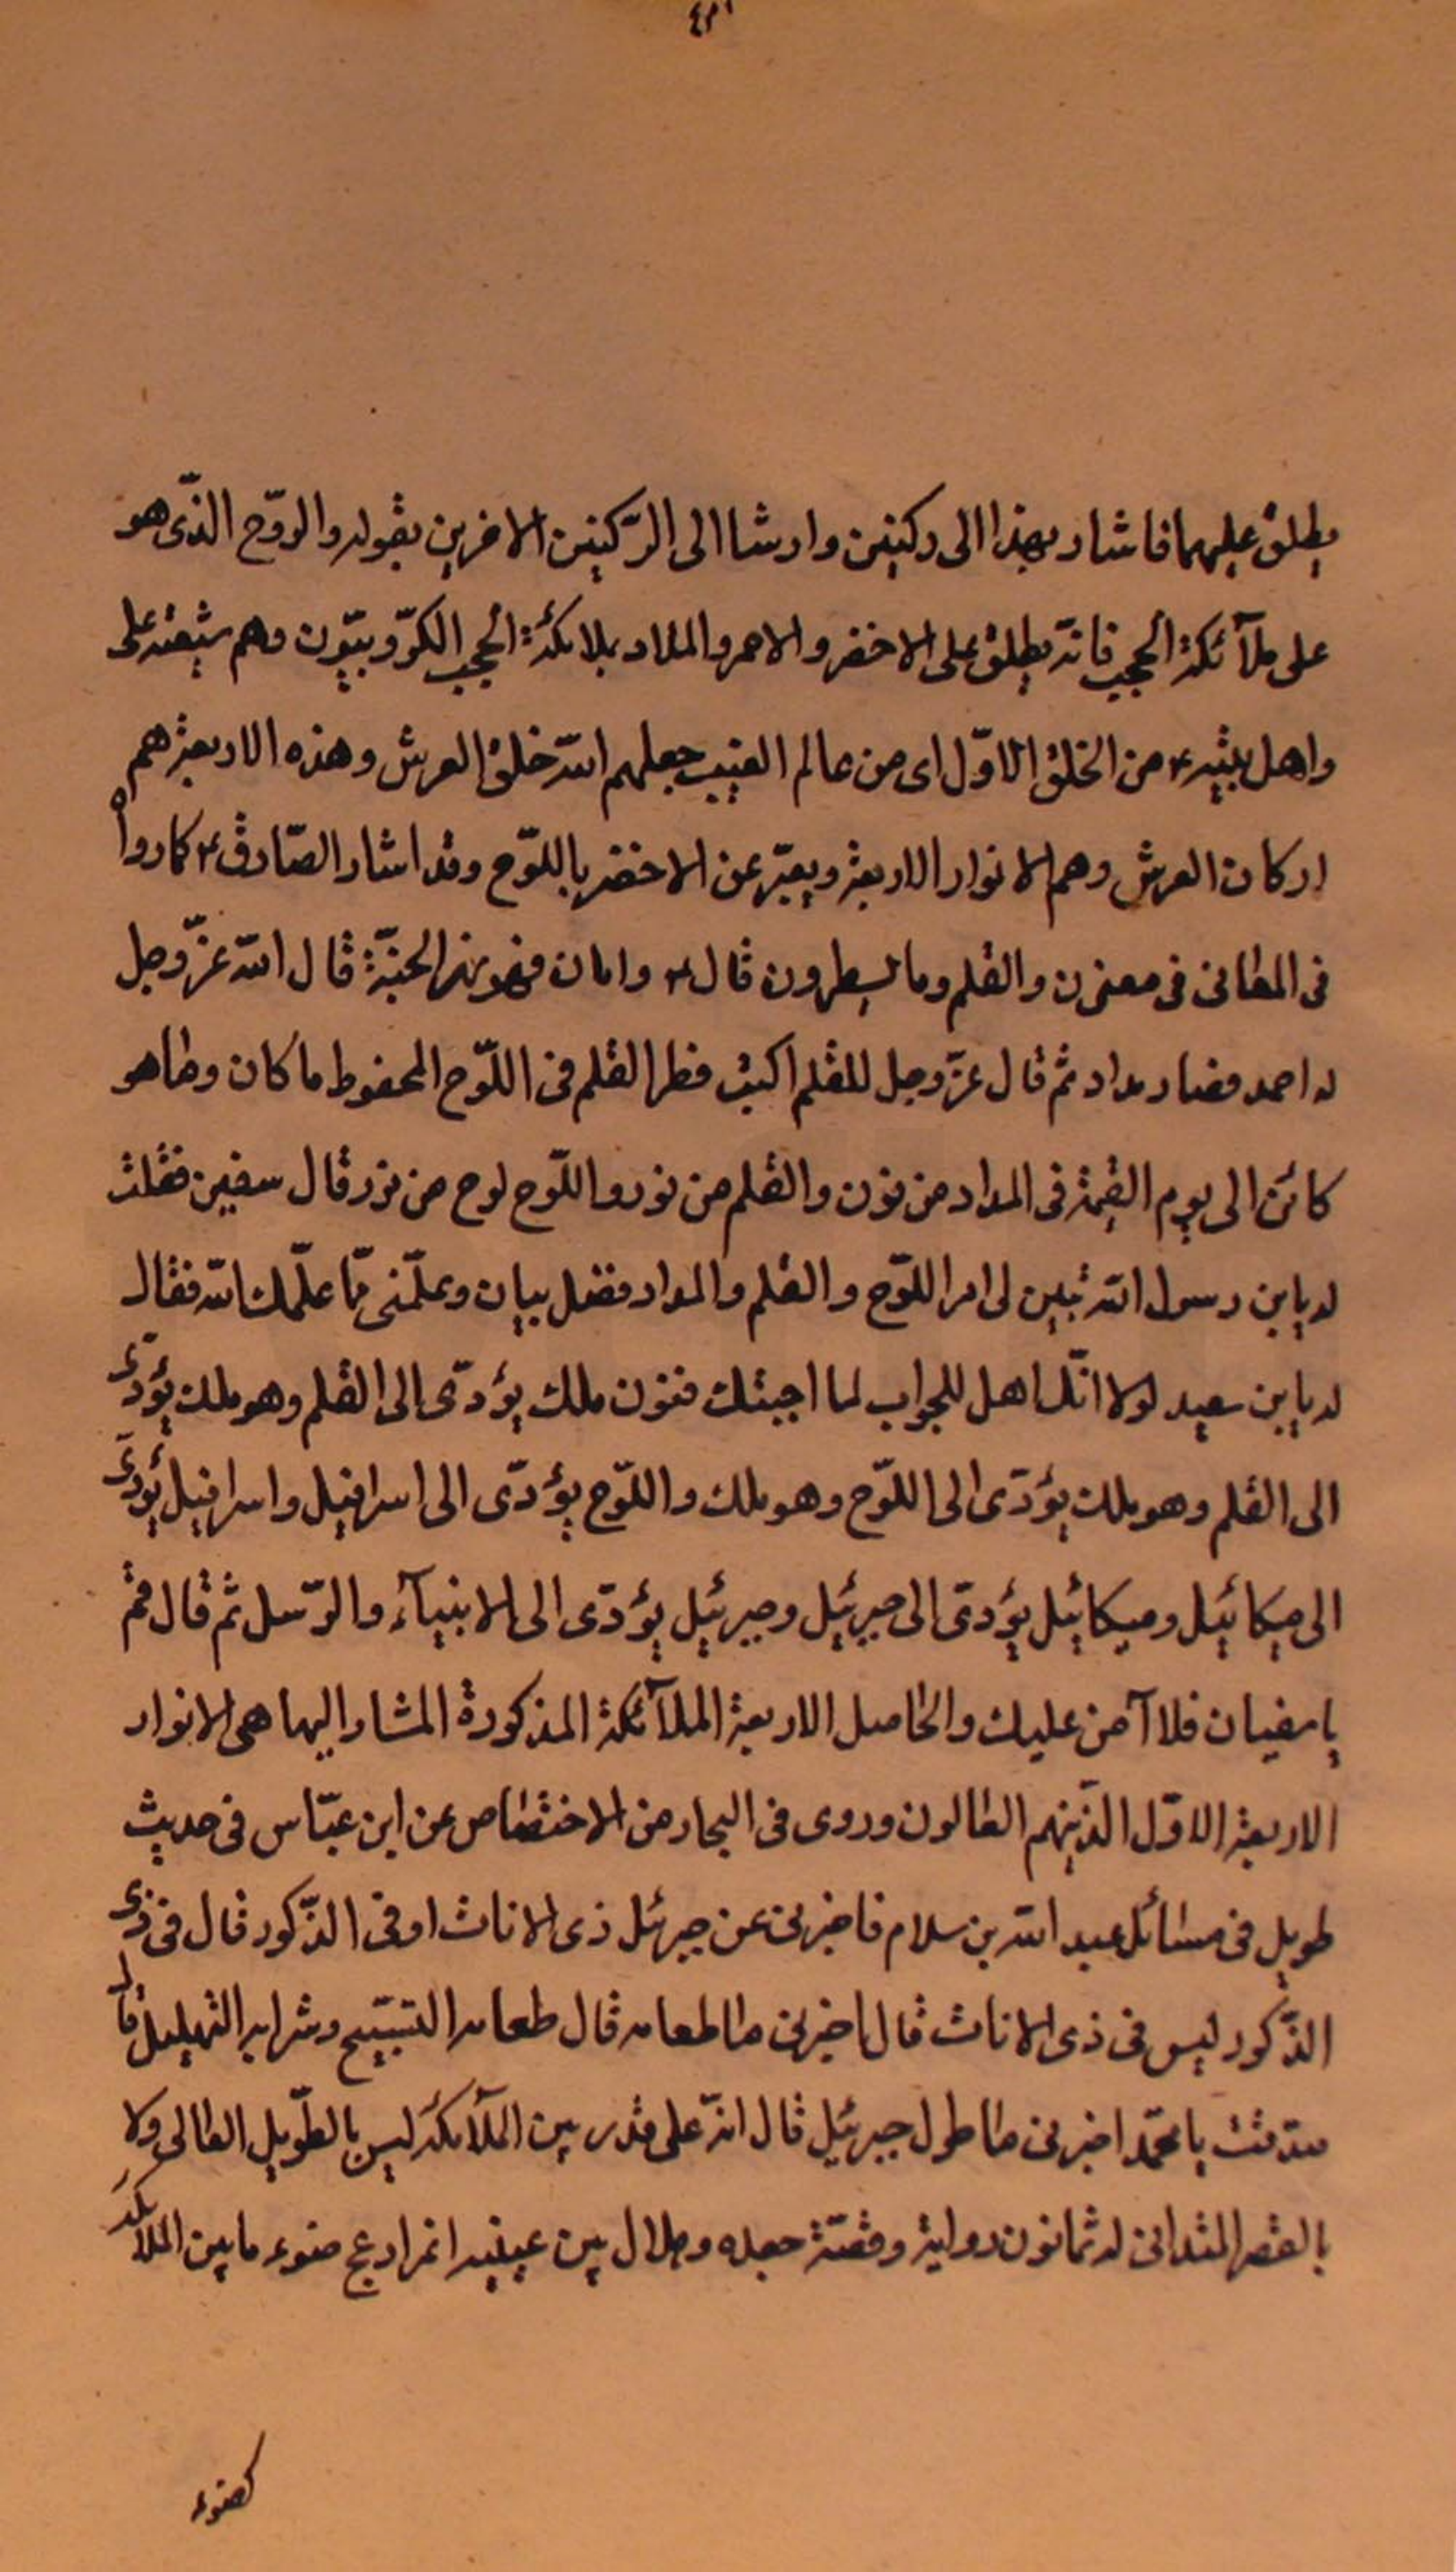 يطلق عليهما فاشار بهذا الى ركنين وارشا الى الرّكنين الاخرين بقوله والروّح الذّى هو
على ملآئكة الحجب فانّه يطلق على الاخضر والاحمر والمراد بملائكة الحجب الكرّوبيّون وهم شيعة على
واهل بيته ع من الخلق الاوّل اى من عالم الغيب جعلهم اللّه خلق العرش وهذه الاربعة هم
اركان العرش وهم الانوار الاربعة ويعبّر عن الاخضر باللّوح وقد اشار الصّادق ع كما رواه
فى المعانى فى معنى ن والقلم وما يسطرون قال ع واما ن فهو نهر الجنّة قال اللّه عزّ وجل
له احمد فصار مداد ثم قال عزّ وجل للقلم اكتب فطر القلم فى اللّوح المحفوظ ما كان وما هو
كائن الى يوم القيمة فى المداد من نون والقلم من نور واللّوح لوح من نور قال سفين فقلت
له يابن رسول اللّه تبين لى امر اللّوح والقلم والمداد فضل بيان وعلّمنى ممّا علّمك اللّه فقال
له يابن سعيد لولا انّك اهل للجواب لما اجبتك فنون ملك يؤدّى الى القلم وهو ملك يؤدّى
الى القلم وهو ملك يؤدّى الى اللّوح وهو ملك واللّوح يؤدّى الى اسرافيل واسرافيل يؤدّى
الى ميكائيل وميكائيل يؤدّى الى جبرئيل وجبرئيل يؤدّى الى الانبيآء والرّسل ثم قال قم
يا سفيان فلا آمن عليك والحاصل الاربعة الملآئكة المذكورة المشار اليها هى الانوار
الاربعة الاوّل الذّينهم العالون وروى فى البحار من الاختصاص عن ابن عبّاس فى حديث
طويل فى مسائل عبد اللّه بن سلام فاخبرنى عن جبرئل ذى الاناث او فى الذّكور قال فى ذى
الذّكور ليس فى ذى الاناث قال اخبرنى ما طعامه قال طعامه التسبيّح وشرابه التهليل قال
صدقت يا محمّد اخبرنى ما طول جبرئيل قال انّه على قدر بين الملآئكة ليس بالطّويل العالى ولا
بالقصر المتدانى له ثمانون رواية وقصّة جعده وهلال بين عينيه اغر ادعج ضوء ما بين الملائكة
كضوء